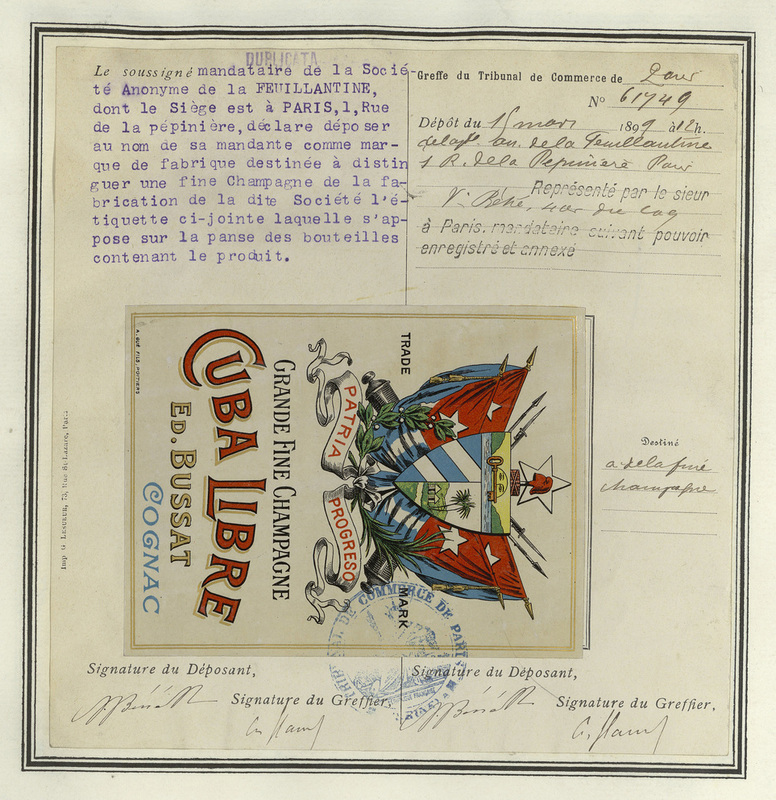 DUPLICATA
Le soussigné mandataire de la Socié-
té Anonyme de la FEUILLANTINE,
dont le Siège est à PARIS,1,Rue
de la pépinière,déclare déposer
au nom de sa mandante comme mar-
que de fabrique destinée à distin
guer une fine Champagne de la fa-
brication de la dite Société l'é-
tiquette ci-jointe laquelle s'ap-
pose sur la panse des bouteilles
contenant le produit.
Greffe du Tribunal de Commerce de Paris
No 61749
Dépôt du 15 mars 1899 à 12h.
de la Sté an. de la Feuillantine
1 R. de la Pépinière Paris
Représenté par le sieur
à Paris, mandataire suivant pouvoir
enregistré et annexé
TRADE
MARK
PATRIA
PROGRESO
GRANDE FINE CHAMPAGNE
CUBA LIBRE
ED. BUSSAT
COGNAC
Destiné
a de la fine
champagne
Imp G LESUEUR, 73, Rue St Lazare, Paris
TRIBUNAL DE COMMERCE DE PARIS
Signature du Déposant,
Signature du Greffier,
Signature du Déposant,
Signature du Greffier,